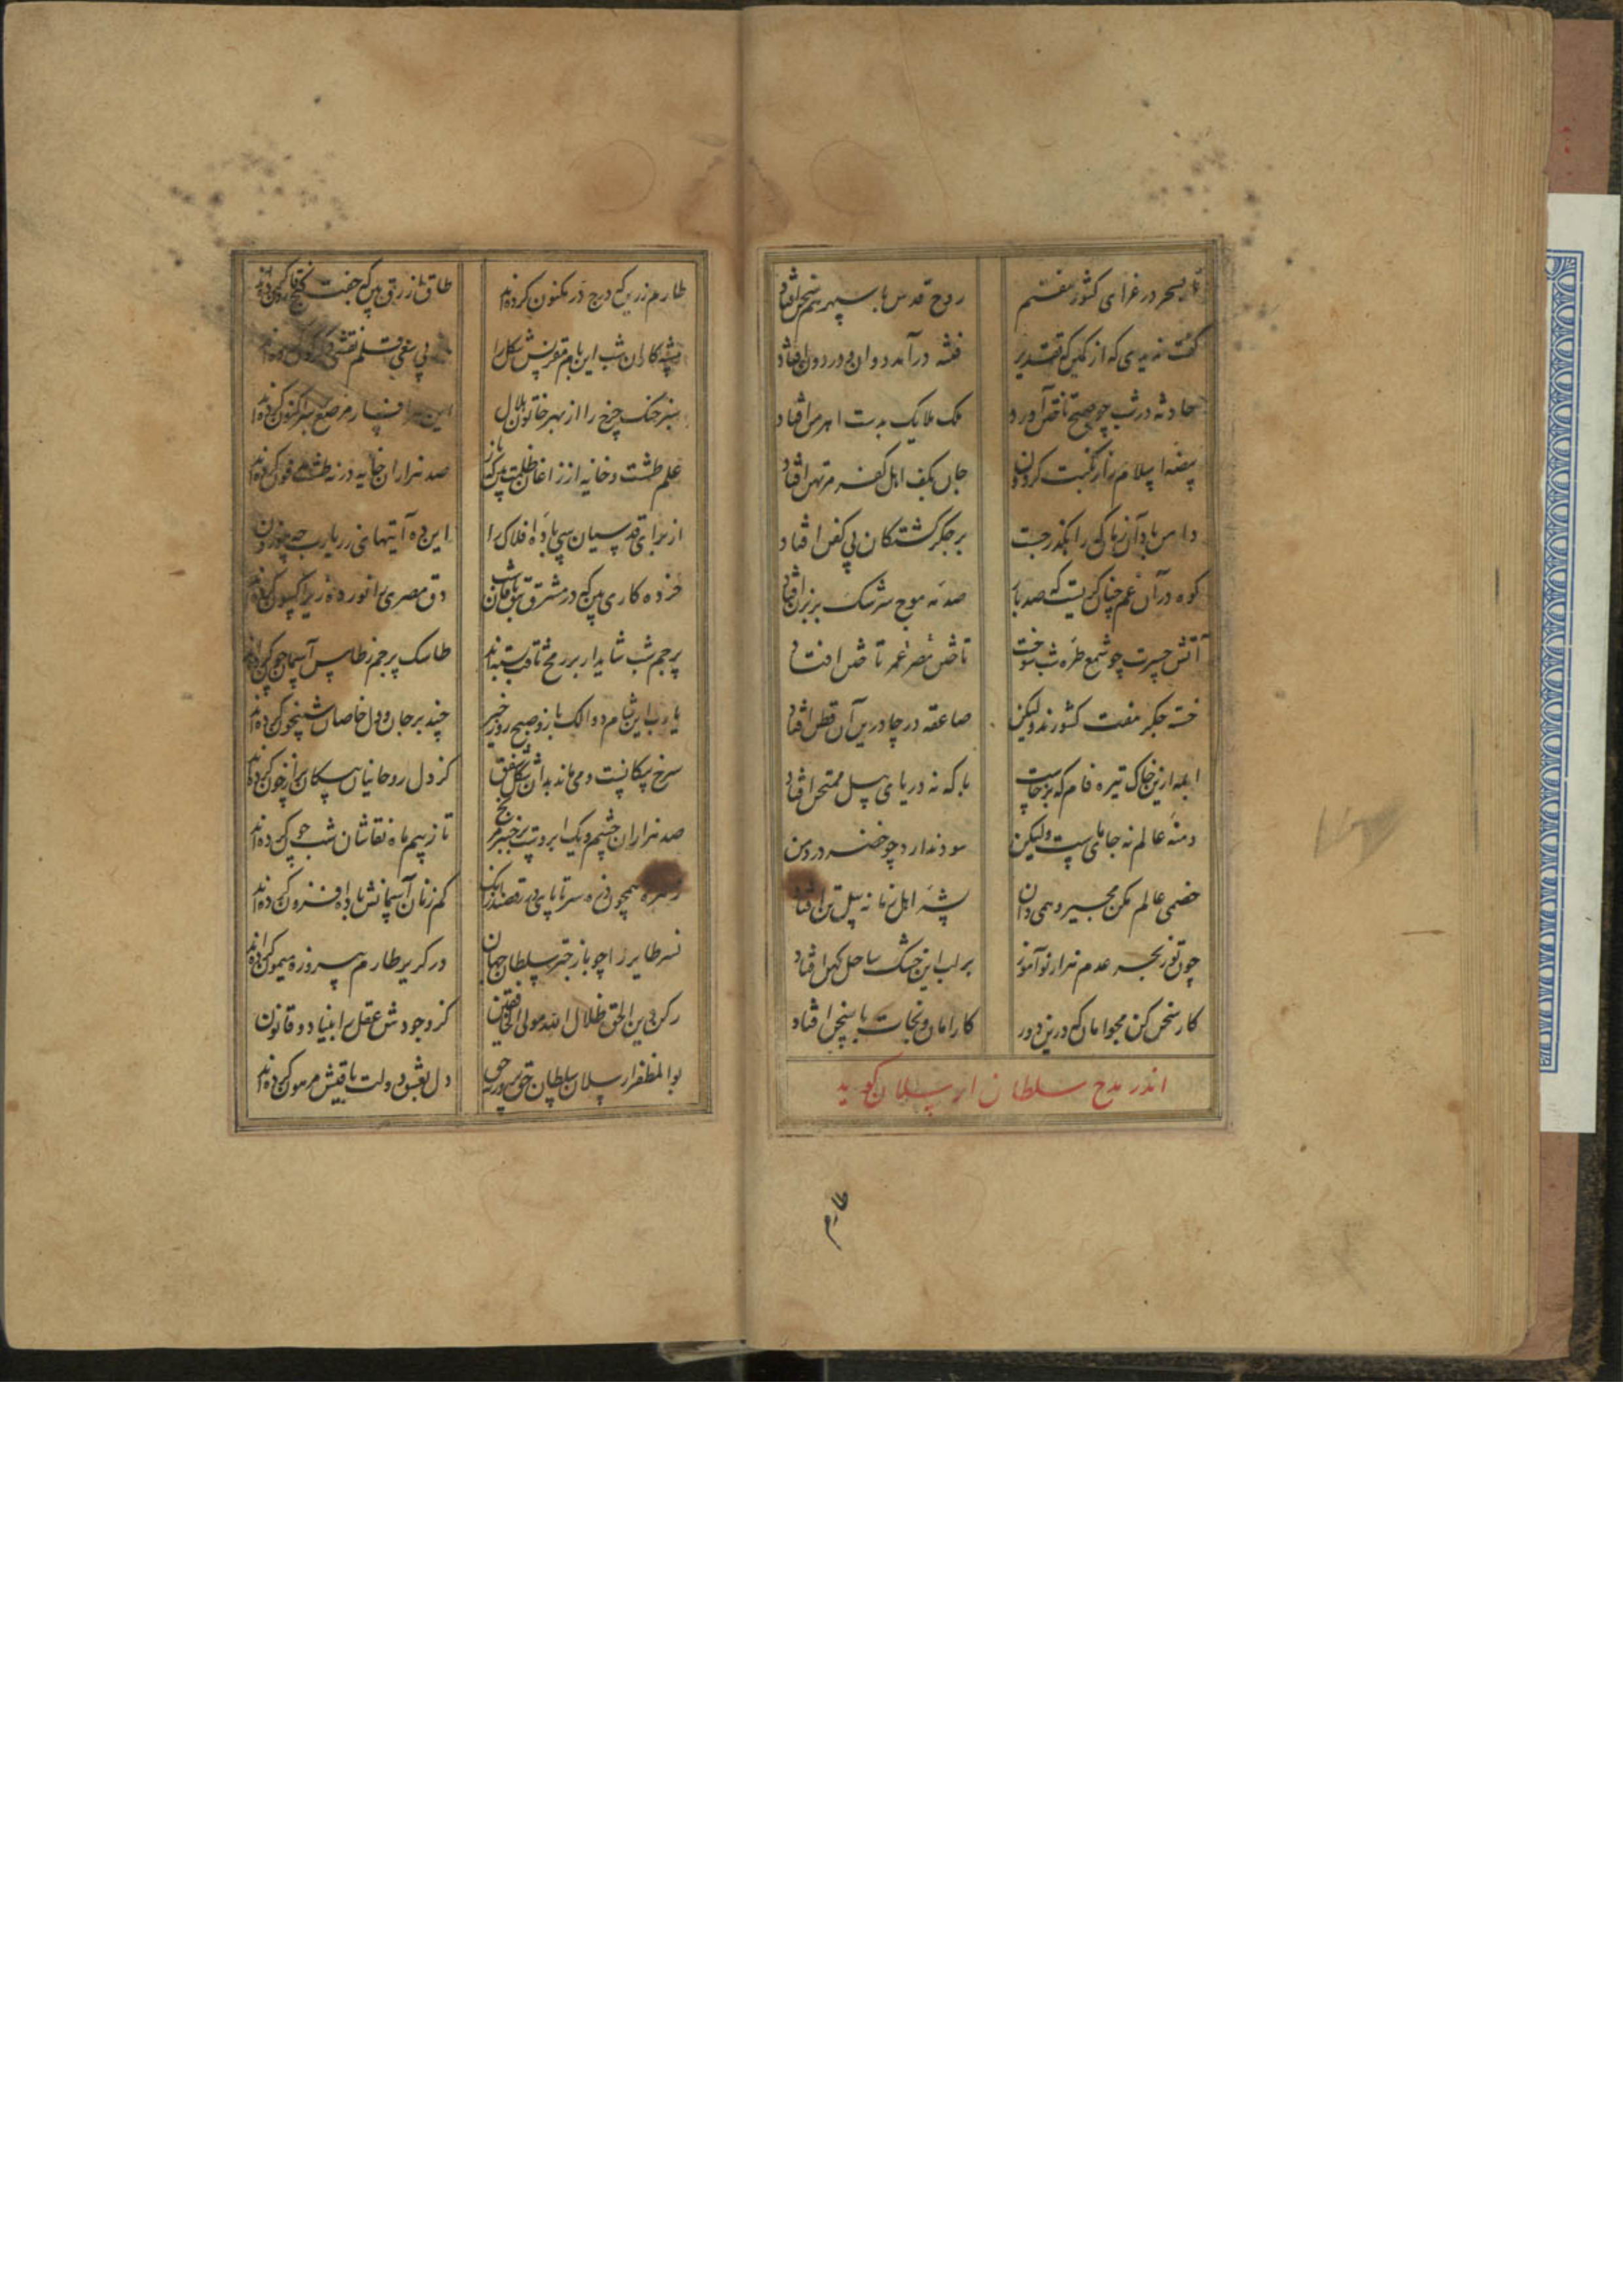 تا بسحر در غزای کشور هفتم روح قدس با سپهر هم سخن افتاد
گفت ندیدی که از کمین که تقدیر فتنه درآمد دوان و در دو افتاد
حادثه در شب چو صبح تاختن آورد ملک ملایک بدست اهرمن افتاد
بیضه اسلام زار نکبت گردون جان بکف اهل کفر مرتهن افتاد
دامن باد آن زمان که را بگذر جست بر جگر کشتگان بی کفن افتاد
کوه در آن غم چنان گریست که صد بار صدمه موج سرشک بر افتاد
آتش حسرت چو شمع طره شب سوخت تاختن مصر عمر تاختن افتاد
خسته جگر هفت کشورند ولیکن صاعقه در چادر این آن قطن افتاد
ابله ازین خاک تیره فام که برخاست با که نه دریای سیل ممتحن افتاد
دمنه عالم نه جای ماست ولیکن سود ندارد چو خضر در دمن
خصمی عالم مکن مجیر و همی دان پشه اهل زمانه پیل تن افتاد
چون تو ز بحر عدم هزار نوآموز بر لب این خشک ساحل کهن افتاد
کار سخن کن مجو امان که درین دور کار امان و نجات با سخن افتاد
اندر مدح سلطان ارسلان گوید
طارم
طارم زر بین که درج در مکنون کرده‌اند طاق ازرق بین که جفت گنج قارون کرده‌اند
پیشه‌کاران شب این بام مقرنس شکل را بی سعی قلم نقشی دگرگون کرده‌اند
سبز خنگ چرخ را از بهر خاتون هلال این سرافسار مرصع بر کنون کرده‌اند
علم طشت و خایه از زاغان ظلمت بین که باز صد هزاران خایه در نه طشت مدفون کرده‌اند
از برای قدسیان سی پاره افلاک را این ده آیتهای زر یارب چه موزون
خرده کاری بین که در مشرق دق مصری را نورد زیر اکسون کرده‌اند
پرچم شب شاید ار بر رمح ثاقب بسته‌اند طاسک پرچم ز طاس آسمان چون کرده‌اند
یارب این شام دوالک باز و صبح روز خیز چند بر جان و دل خاصان شبیخون کرده‌اند
سرخ پیکانیست و می‌ماند بدان شکل شفق کز دل روحانیان پیکان پر از خون کرده‌اند
صد هزاران چشم و یک ابروست بر خنجر تا ز سیم ماه نقاشان شب چون کرده‌اند
زهره همچون ذره سر تا پای در رقصند زانک کم زنان آسمانش باده افزون کرده‌اند
نسر طایر را چو باز چتر سلطان جهان در گریز طارم پیروزه میمون کرده‌اند
رکن دین الحق ظلال الله مولی الخافقین کز وجودش عقل را بنیاد و قانون
بوالمظفر ارسلان سلطان حق پرور دل بعشق دولت باقیش مرهون کرده‌اند